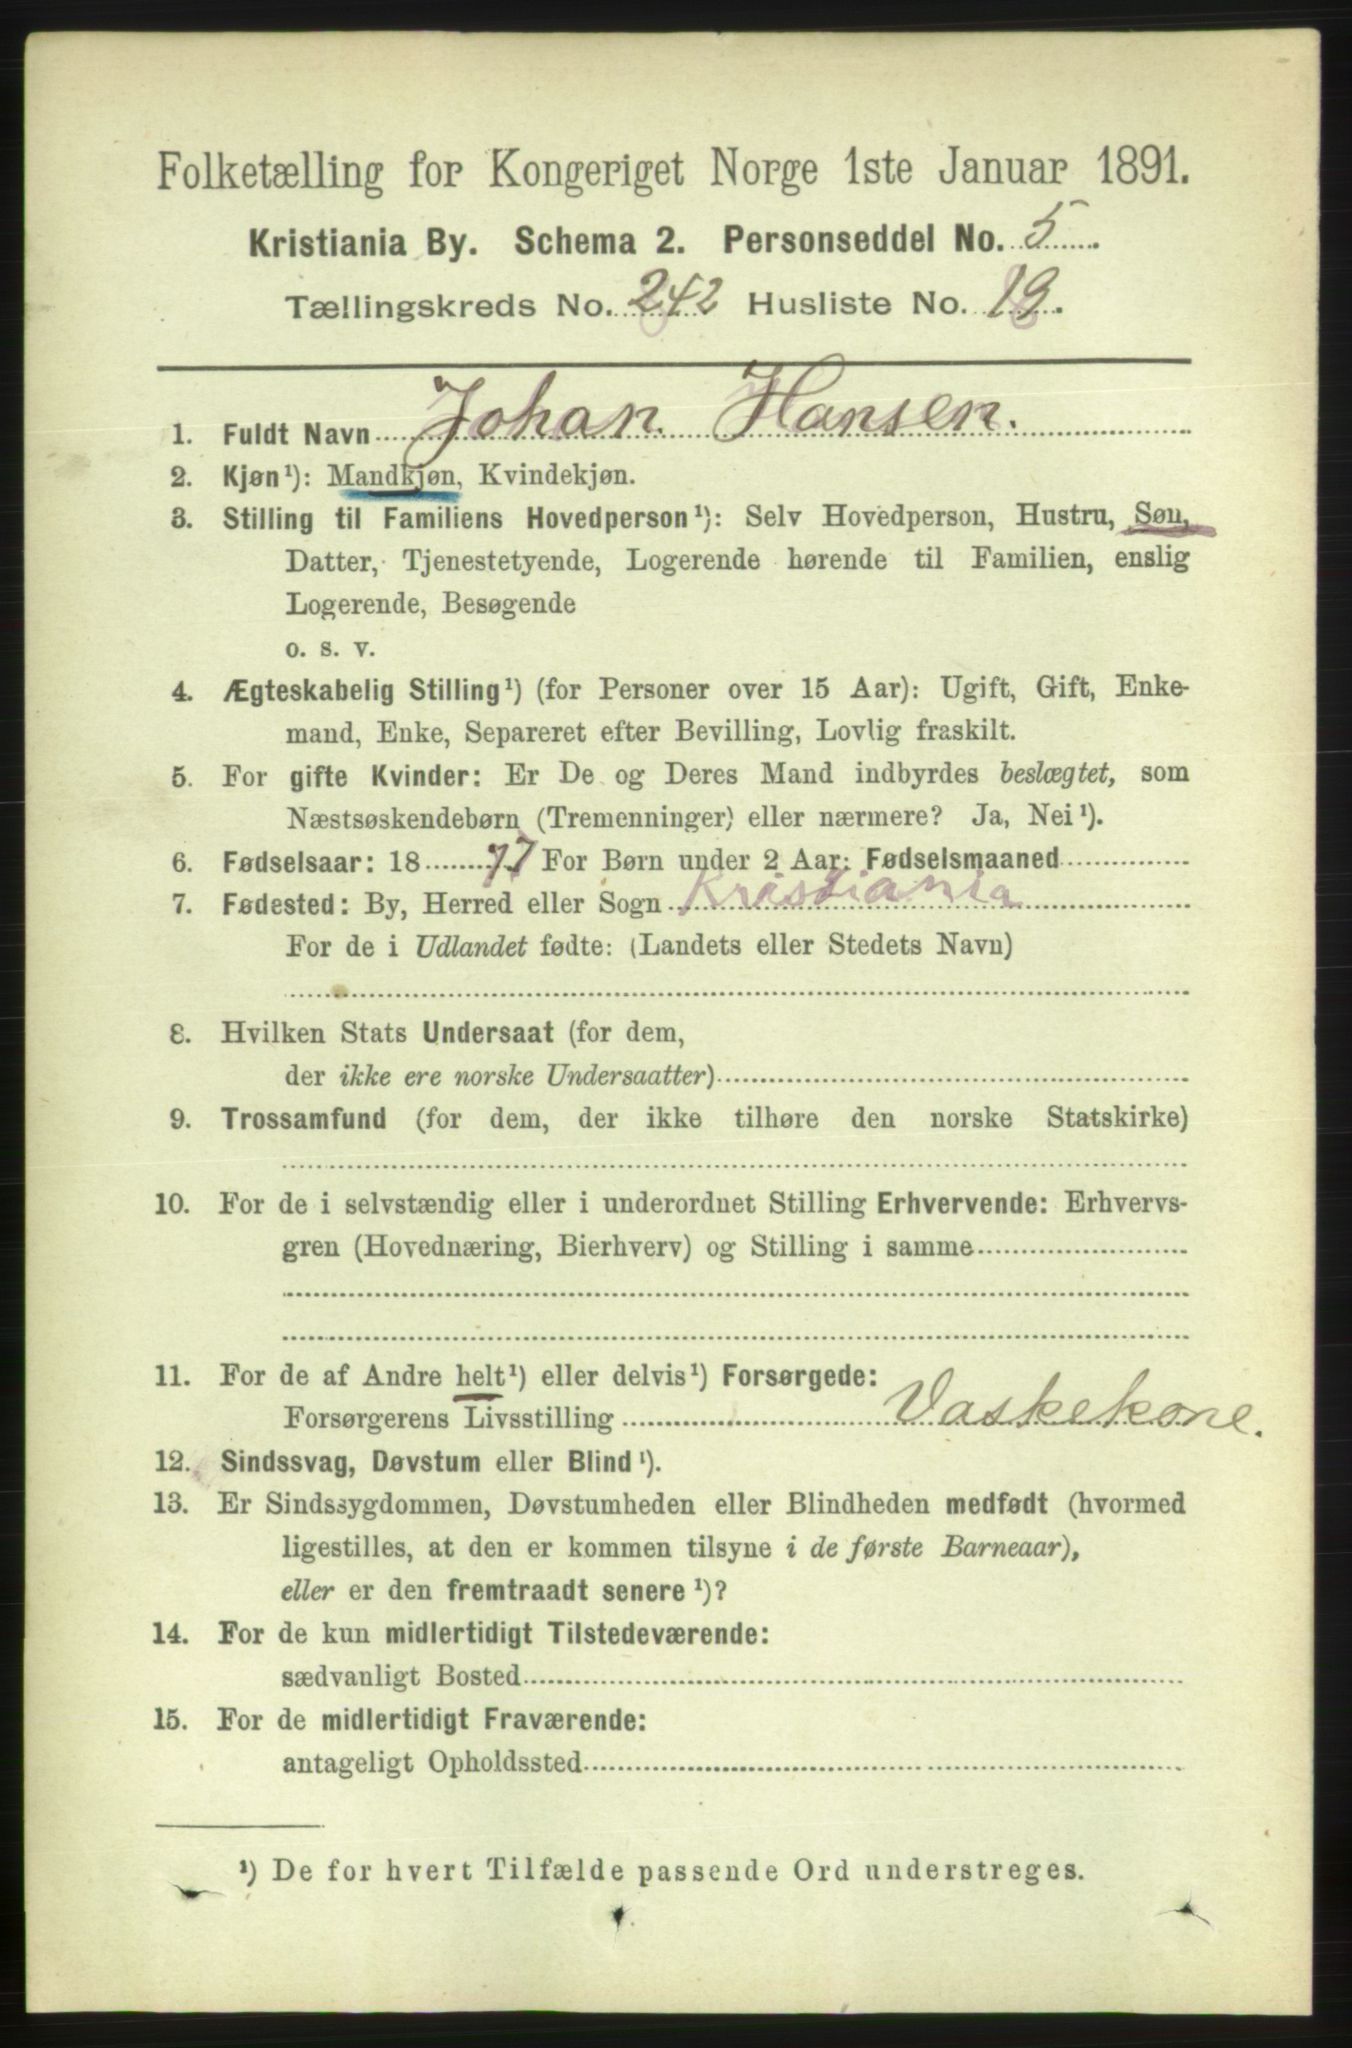 Folketælling for Kongeriget Norge 1ste Januar 1891.
Kristiania By. Schema 2. Personseddel No. 5.
Tællingskreds No. 242 Husliste No. 19.
1. Fuldt Navn Johan Hansen.
2. Kjøn¹): Mandkjøn, Kvindekjøn.
3. Stilling til Familiens Hovedperson¹): Selv Hovedperson, Hustru, Søn,
Datter, Tjenestetyende, Logerende hørende til Familien, enslig
Logerende, Besøgende
o. s. v.
4. Ægteskabelig Stilling¹) (for Personer over 15 Aar): Ugift, Gift, Enke-
mand, Enke, Separeret efter Bevilling, Lovlig fraskilt.
5. For gifte Kvinder: Er De og Deres Mand indbyrdes beslægtet, som
Næstsøskendebørn (Tremenninger) eller nærmere? Ja, Nei¹).
6. Fødselsaar: 18 77 For Børn under 2 Aar: Fødselsmaaned
7. Fødested: By, Herred eller Sogn Kristiania
For de i Udlandet fødte: (Landets eller Stedets Navn)
8. Hvilken Stats Undersaat (for dem,
der ikke ere norske Undersaatter)
9. Trossamfund (for dem, der ikke tilhøre den norske Statskirke)
10. For de i selvstændig eller i underordnet Stilling Erhvervende: Erhvervs-
gren (Hovednæring, Bierhverv) og Stilling i samme
11. For de af Andre helt¹) eller delvis¹) Forsørgede:
Forsørgerens Livsstilling Vaskekone.
12. Sindssvag, Døvstum eller Blind¹).
13. Er Sindssygdommen, Døvstumheden eller Blindheden medfødt (hvormed
ligestilles, at den er kommen tilsyne i de første Barneaar),
eller er den fremtraadt senere¹)?
14. For de kun midlertidigt Tilstedeværende:
sædvanligt Bosted
15. For de midlertidigt Fraværende:
antageligt Opholdssted
¹) De for hvert Tilfælde passende Ord understreges.